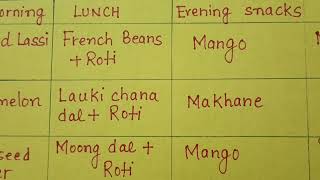 orning LUNCH Evening snacks
d Lassi French Beans Mango
+ Roti
melon Lauki chana Makhane
dal + Roti
seed Moong dal + Mango
er Roti